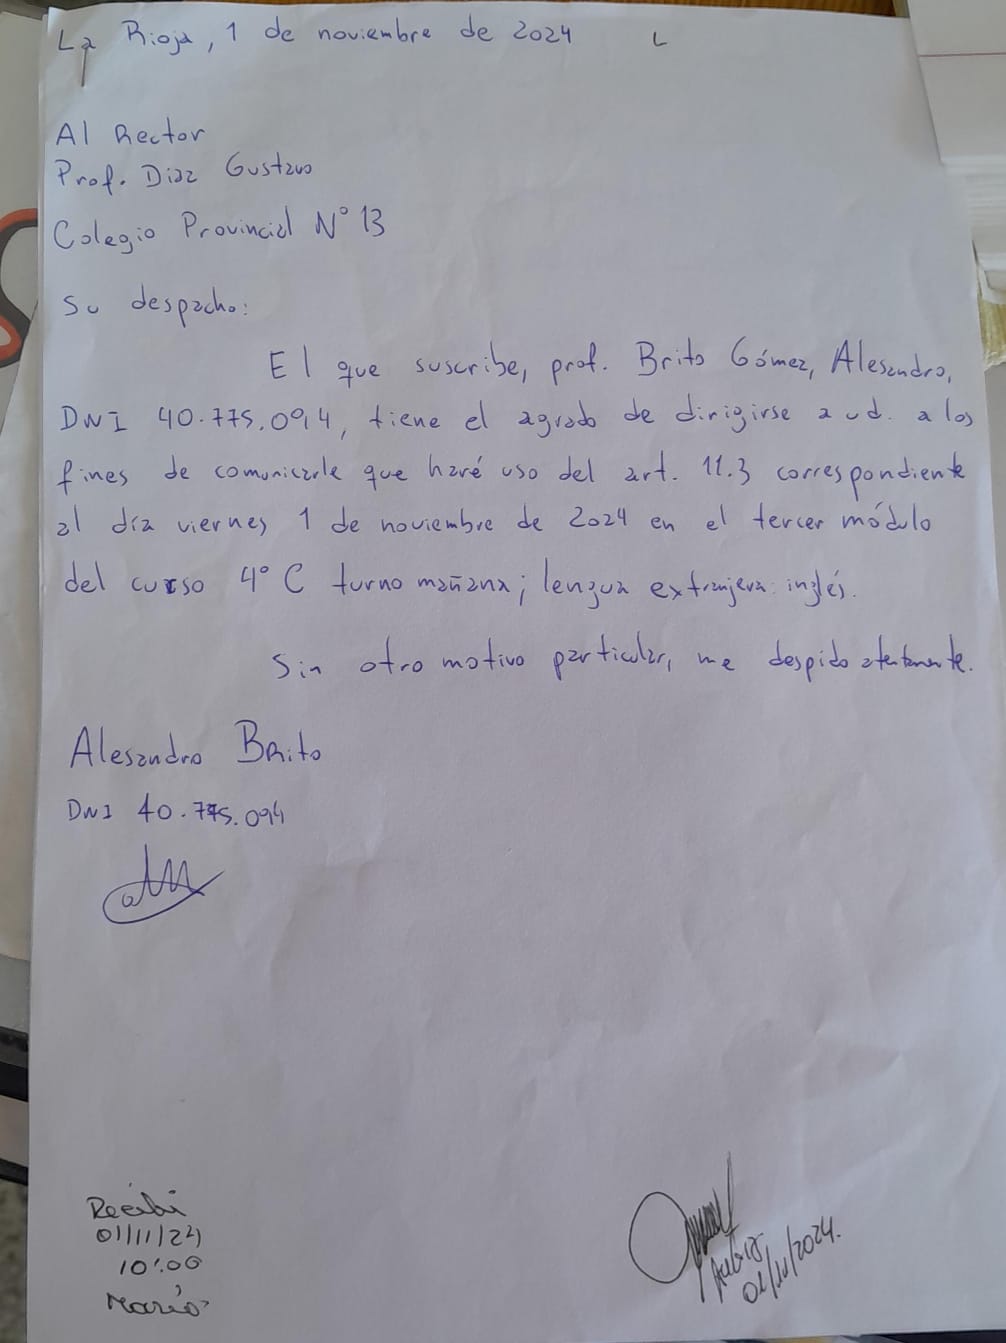 La Rioja, 1 de noviembre de 2024
Al Rector
Prof. Diaz Gustavo
Colegio Provincial N° 13
Su despacho:
El que suscribe, prof. Brito Gómez, Alesandro,
DNI 40.775.094, tiene el agrado de dirigirse a ud. a los
fines de comunicarle que haré uso del art. 11.3 correspondiente
al día viernes 1 de noviembre de 2024 en el tercer módulo
del curso 4° C turno mañana; lengua extranjera: inglés.
Sin otro motivo particular, me despido atentamente.
Alesandro Brito
DNI 40.775.094
Recibi
01/11/24
10:00